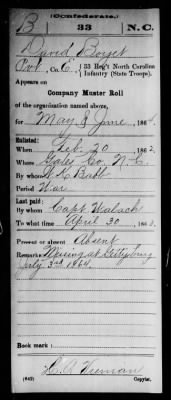 (Confederate.)
B 33 N.C.
David Boyet
Pvt., Co. E, 33 Reg't North Carolina
Infantry (State Troops).
Appears on
Company Muster Roll
of the organization named above,
for May & June, 1864.
Enlisted:
When Feb. 20, 1862.
Where Gates Co. N.C.
By whom
Period War
Last paid:
By whom Capt
To what time April 30, 1863.
Present or absent Absent
Remarks: Missing at Gettysburg
July 3rd 1864.
Book mark:
(642) Copyist.